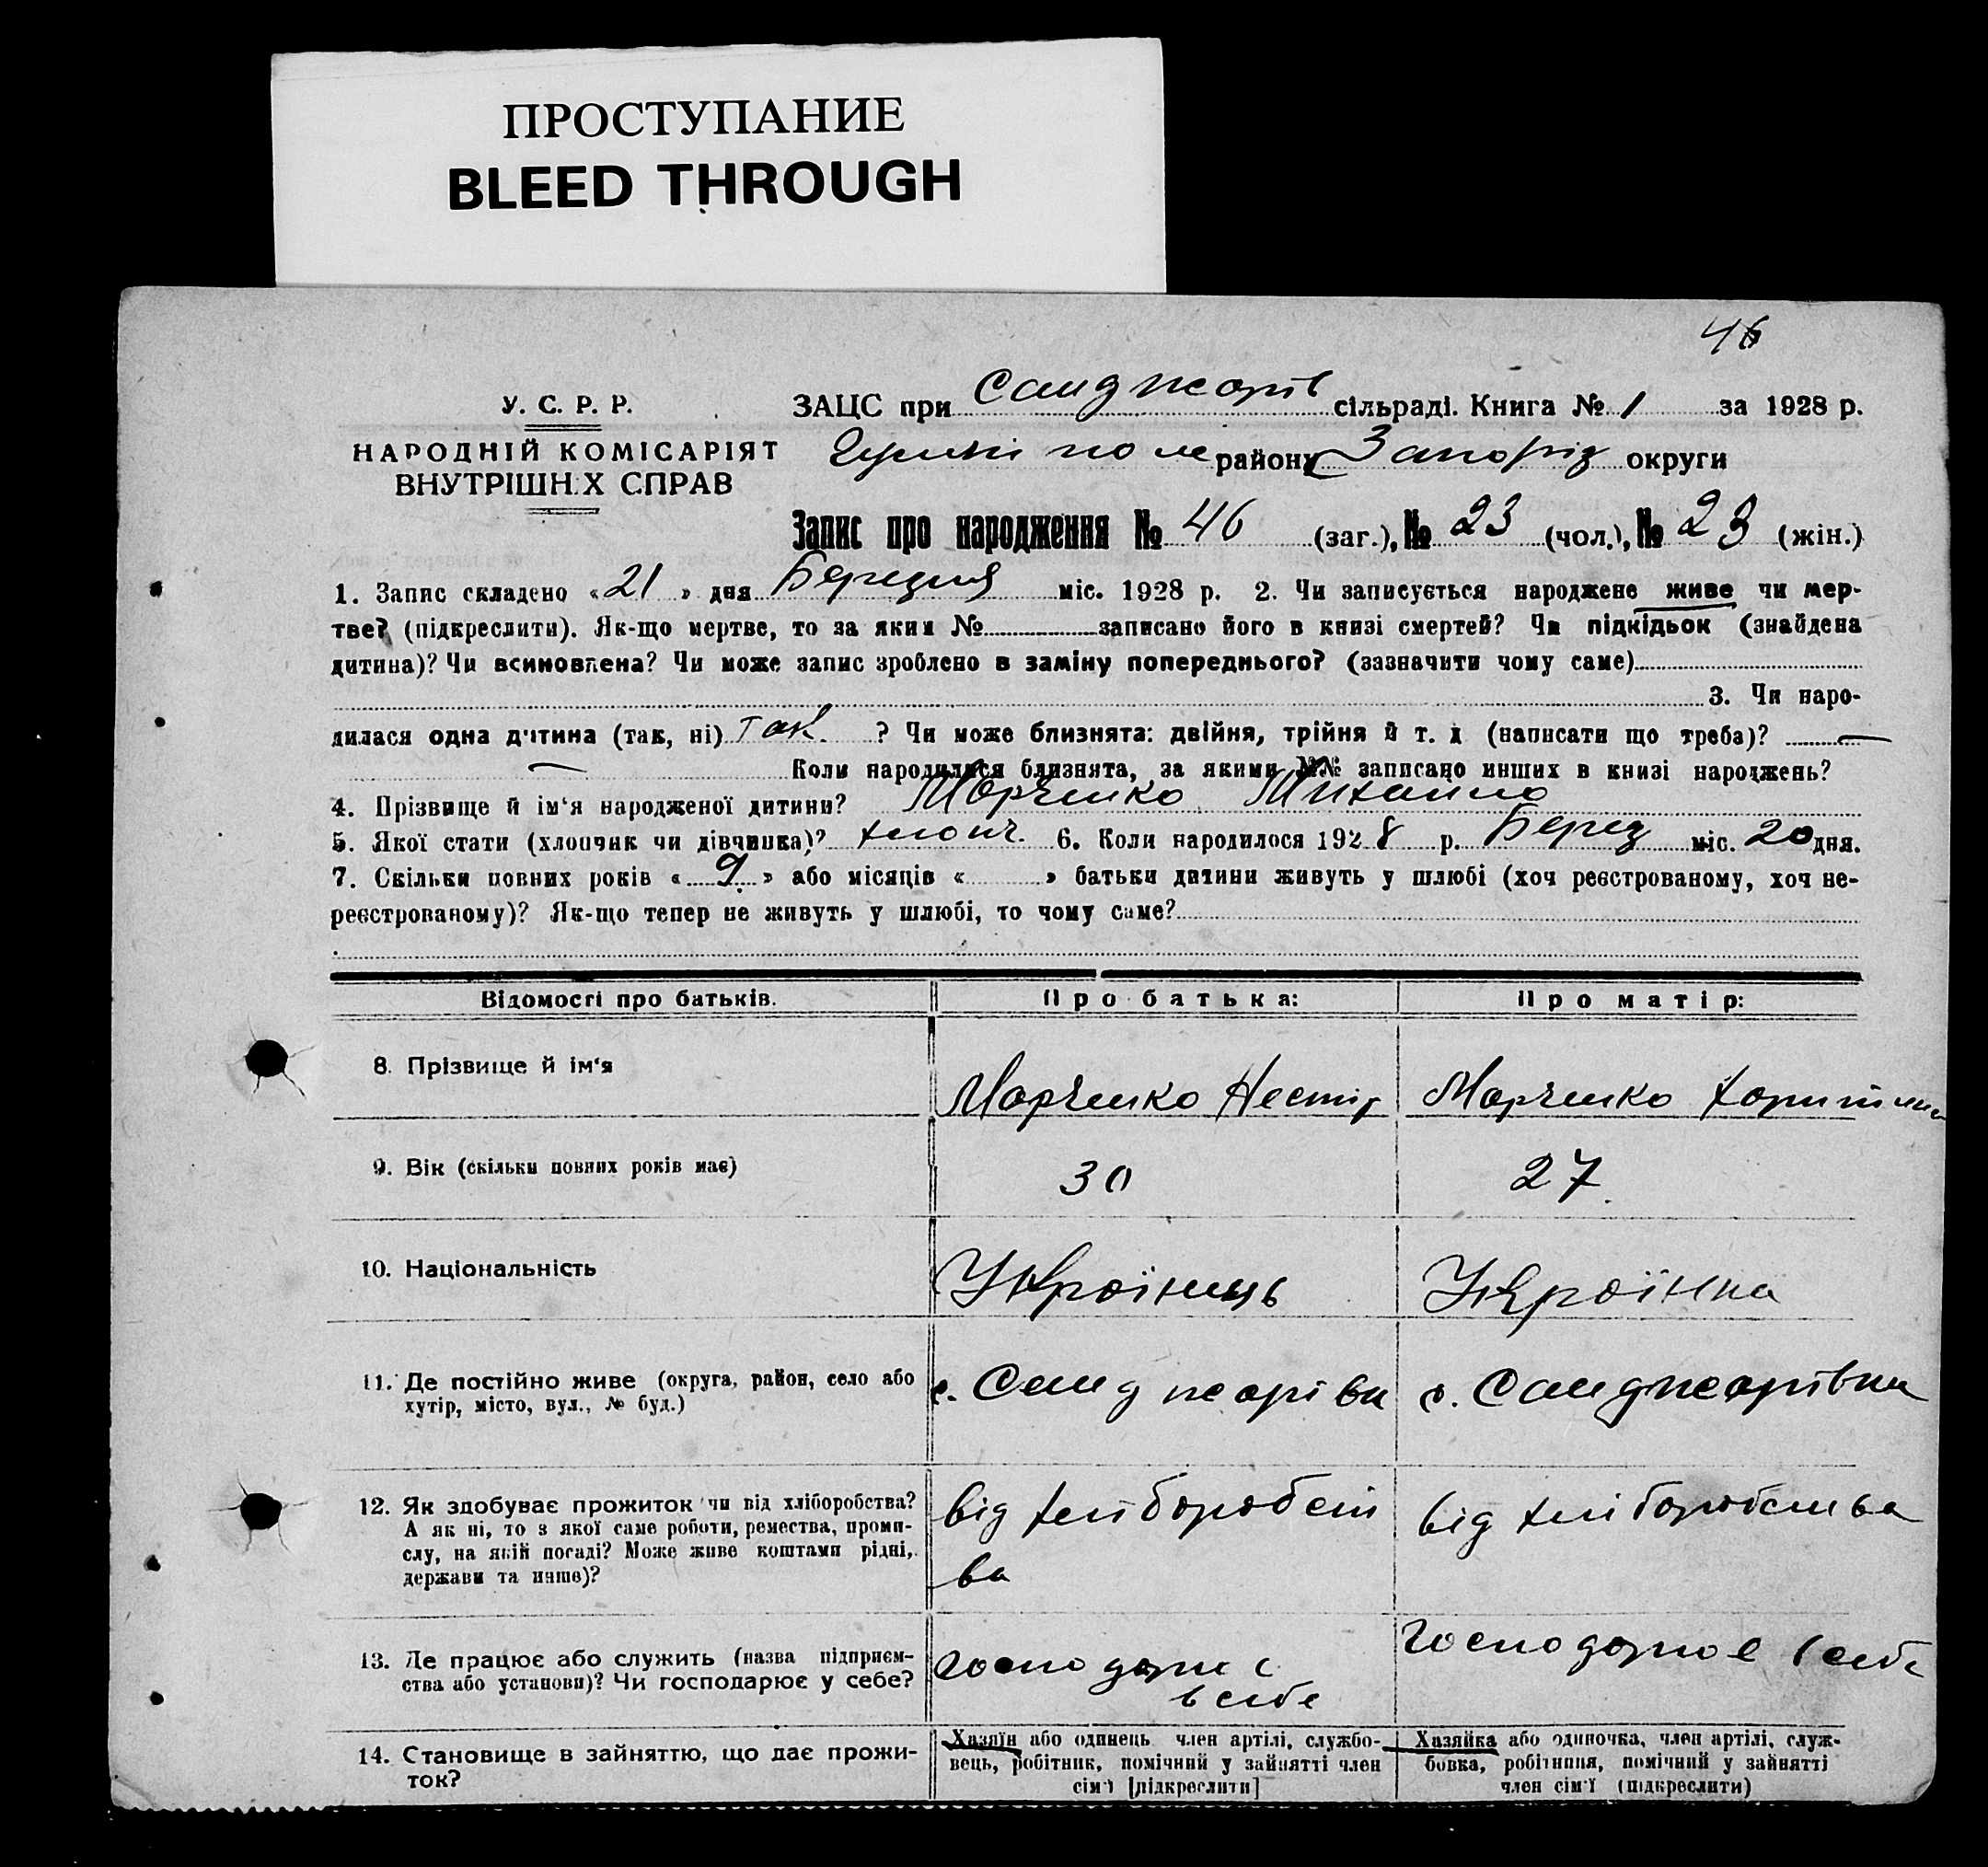 ПРОСТУПАНИЕ
BLEED THROUGH
46
У. С. Р. Р.
НАРОДНІЙ КОМІСАРІЯТ
ВНУТРІШНІХ СПРАВ
ЗАЦС при Санджарів сільраді. Книга № 1 за 1928 р.
Гуляй поле району Запоріз округи
Запис про народження № 46 (заг.), № 23 (чол.), № 23 (жін.)
1. Запис складено «21» дня Березня міс. 1928 р. 2. Чи записується народжене живе чи мер-
тве? (підкреслити). Як-що мертве, то за яким № записано його в книзі смертей? Чи підкідьок (знайдена
дитина)? Чи всиновлена? Чи може запис зроблено в заміну попереднього? (зазначити чому саме)
3. Чи наро-
дилася одна дитина (так, ні) так. ? Чи може близнята: двійня, трійня й т. д (написати що треба)? —
— Коли народилися близнята, за якими №№ записано инших в книзі народжень?
4. Прізвище й ім‘я народженої дитини? Марченко Михайло
5. Якої стати (хлопчик чи дівчинка)? хлопч. 6. Коли народилося 1928 р. Берез міс. 20 дня.
7. Скільки повних років «9.» або місяців « » батьки дитини живуть у шлюбі (хоч реєстрованому, хоч не-
реєстрованому)? Як-що тепер не живуть у шлюбі, то чому саме?
Відомості про батьків. Про батька: Про матір:
8. Прізвище й ім‘я Марченко Нестір Марченко
9. Вік (скільки повних років має) 30 27
10. Національність Українець Українка
11. Де постійно живе (округа, район, село або
хутір, місто, вул., № буд.) с. Санджарівка с. Санджарівка
12. Як здобуває прожиток чи від хліборобства?
А як ні, то з якої саме роботи, ремества, проми-
слу, на якій посаді? Може живе коштами рідні,
держави та инше)?
від хліборобст
ва
від хліборобства
13. Де працює або служить (назва підприєм-
ства або установи)? Чи господарює у себе?
господарює
в себе
господарює в себе
14. Становище в зайняттю, що дає прожи-
ток?
Хазяїн або одинець член артілі, службо-
вець, робітник, помічний у зайнятті член
сім‘ї [підкреслити]
Хазяйка або одиночка, член артілі, служ-
бовка, робітниця, помічний у зайнятті
член сім‘ї (підкреслити)